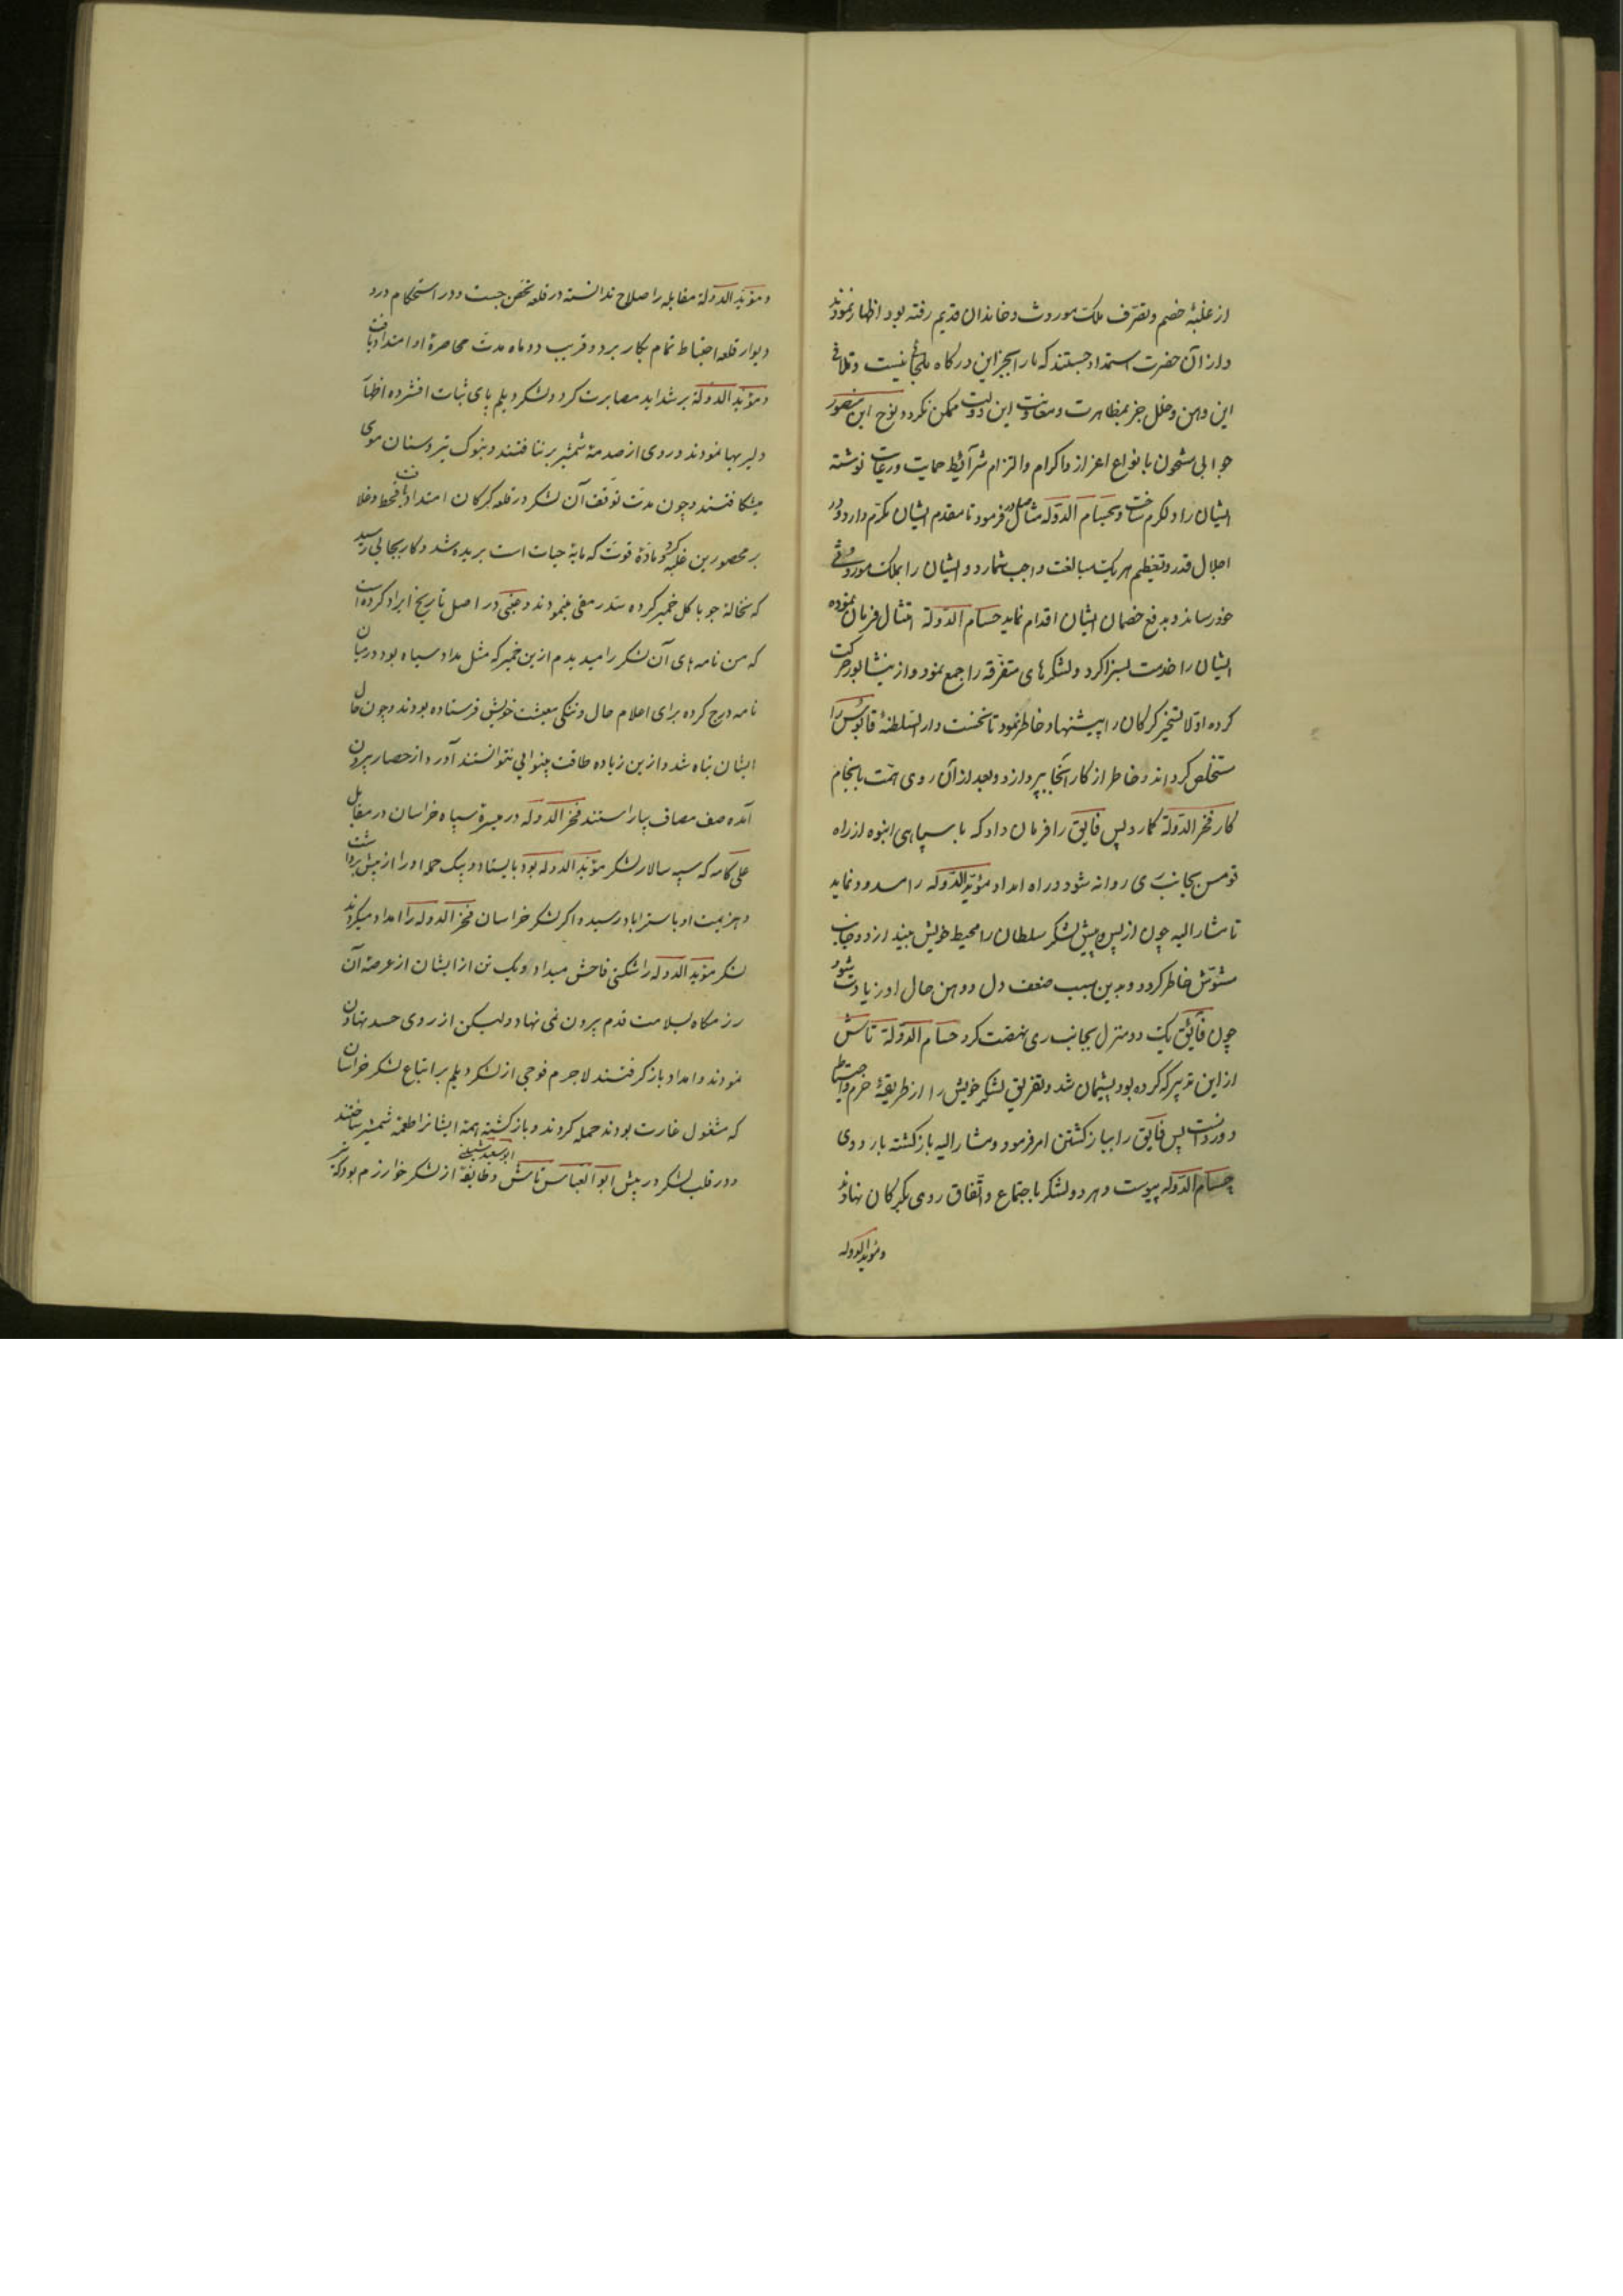 از غلبهٔ خصم و تصرّف ملک موروث و خاندان قدیم رفته بود اظهار نمودند
و از آن حضرت استمداد جستند که ما را بجز این درکاه ملجائی نیست و تلافی
این وهن و خلل جز بمظاهرت و معاونت این دولت ممکن نکردد نوح ابن منصور
جوابی مشحون بانواع اعزاز و اکرام و التزام شرآئط حمایت و رعایت نوشته
ایشان را دلکرم ساخت و بحسام الدّوله تاش فرمود تا مقدم ایشان مکرّم دارد و در
اجلال قدر و تعظیم هر یک مبالغت واجب شمارد و ایشان را بملک موروثی
خود رساند و بدفع خصمان ایشان اقدام نماید حسام الدّولة امتثال فرمان نموده
ایشان را خدمت بسزا کرد و لشکرهای متفرّقه را جمع نمود و از نیشابور حرکت
کرده اوّلا تسخیر کرکان را پیشنهاد خاطر نمود تا نخست دار السّلطنهٔ قابوس را
مستخلص کرداند و خاطر از کار آنجا بپردازد و بعد از آن روی همّت بانجام
کار فخر الدّولة کمارد پس فایق را فرمان داد که با سپاهی انبوه از راه
قومس بجانب ری روانه شود و راه امداد مؤیّد الدّوله را مسدود نماید
تا مشار الیه چون از پس و پیش لشکر سلطان را محیط خویش بیند از دو جانب
مشوّش خاطر کردد و بدین سبب ضعف دل و وهن حال او زیادت شود
چون فآئق یک دو منزل بجانب ری نهضت کرد حسام الدّولة تاش
از این تدبیر که کرده بود پشیمان شد و تفریق لشکر خویش را از طریقهٔ حزم و احتیاط
دور دانست پس فایق را ببازکشتن امر فرمود و مشار الیه بازکشته باردوی
حسام الدّوله پیوست و هر دو لشکر باجتماع و اتّفاق روی بکرکان نهادند
و مؤید الدوله
و مؤیّد الدّولة مقابله را صلاح ندانسته در قلعه تحصّن جست و در استحکام در و
دیوار قلعه احتیاط تمام بکار برد و قریب دو ماه مدت محاصرهٔ او امتداد یافت
و مؤیّد الدولة بر شداید مصابرت کرد و لشکر دیلم پای ثبات افشرده اظهار
دلیریها نمودند و روی از صدمهٔ شمشیر برنتافتند و بنوک تیر و سنان موی
میشکافتند و چون مدت توقف آن لشکر در قلعه کرکان امتداد یافت قحط و غلا
بر محصورین غلبه کرد و مادّه قوت که مایهٔ حیات است بریده شد و کار بجایی رسید
که نخالهٔ جو با کل خمیر کرده سدّ رمقی مینمودند و عتبی در اصل تاریخ ایراد کرده است
که من نامه های آن لشکر را میدیدم از ین خمیر که مثل مداد سیاه بود در میان
نامه درج کرده برای اعلام حال و تنکی معیشت خویش فرستاده بودند و چون حال
ایشان تباه شد و ازین زیاده طاقت بینوایی نتوانستند آورد از حصار بیرون
آمده صف مصاف بیاراستند فخر الدوله در میسرهٔ سپاه خراسان در مقابل
علی کامه که سپه سالار لشکر مؤیّد الدوله بود بایستاد و بیک حمله او را از پیش برداشت
و هزیمت او باستراباد رسید و اکر لشکر خراسان فخر الدوله را امداد میکردند
لشکر مؤیّد الدوله را شکنی فاحش میداد و یک تن از ایشان از عرصهٔ آن
رزمکاه بسلامت قدم بیرون نمی نهاد ولیکن از روی حسد تهاون
نمودند و امداد بازکرفتند لاجرم فوجی از لشکر دیلم بر اتباع لشکر خراسان
که مشغول غارت بودند حمله کردند و بازکشته همهٔ ایشانرا طعمهٔ شمشیر ساختند
و در قلب لشکر در پیش ابو العباس تاش ابو سعید شیبی و طایفهٔ از لشکر خوارزم بود که